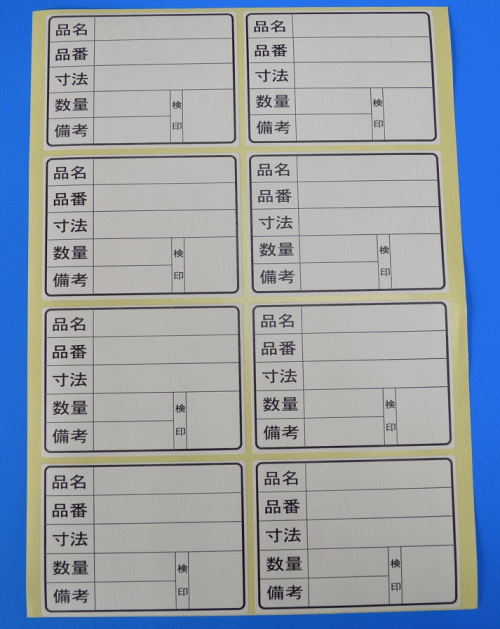 品名
品番
寸法
数量 検
備考 印
品名
品番
寸法
数量 検
備考 印
品名
品番
寸法
数量 検
備考 印
品名
品番
寸法
数量 検
備考 印
品名
品番
寸法
数量 検
備考 印
品名
品番
寸法
数量 検
備考 印
品名
品番
寸法
数量 検
備考 印
品名
品番
寸法
数量 検
備考 印